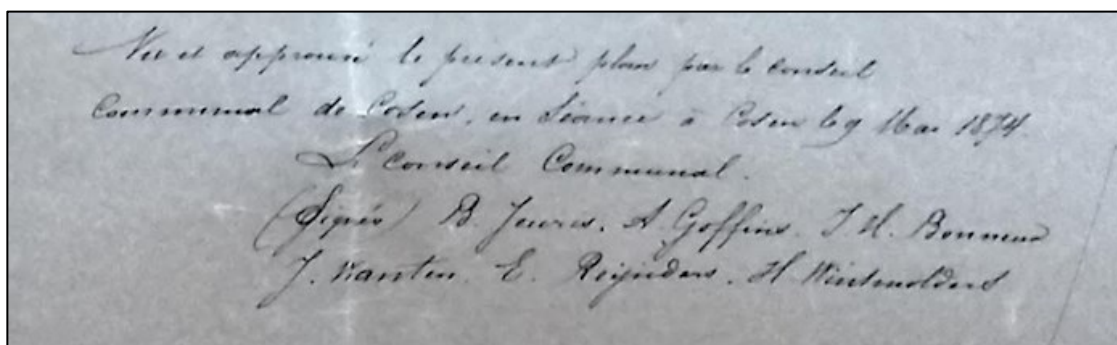 Vu et approuvé le present plan par le conseil
Communal de Cosen, en Séance à Cosen le 9 Mai 1874.
Le Conseil Communal.
(Signés) B. Jeuris, A. Goffins. J. H.
J. Kanten. E. Reijnders. H.